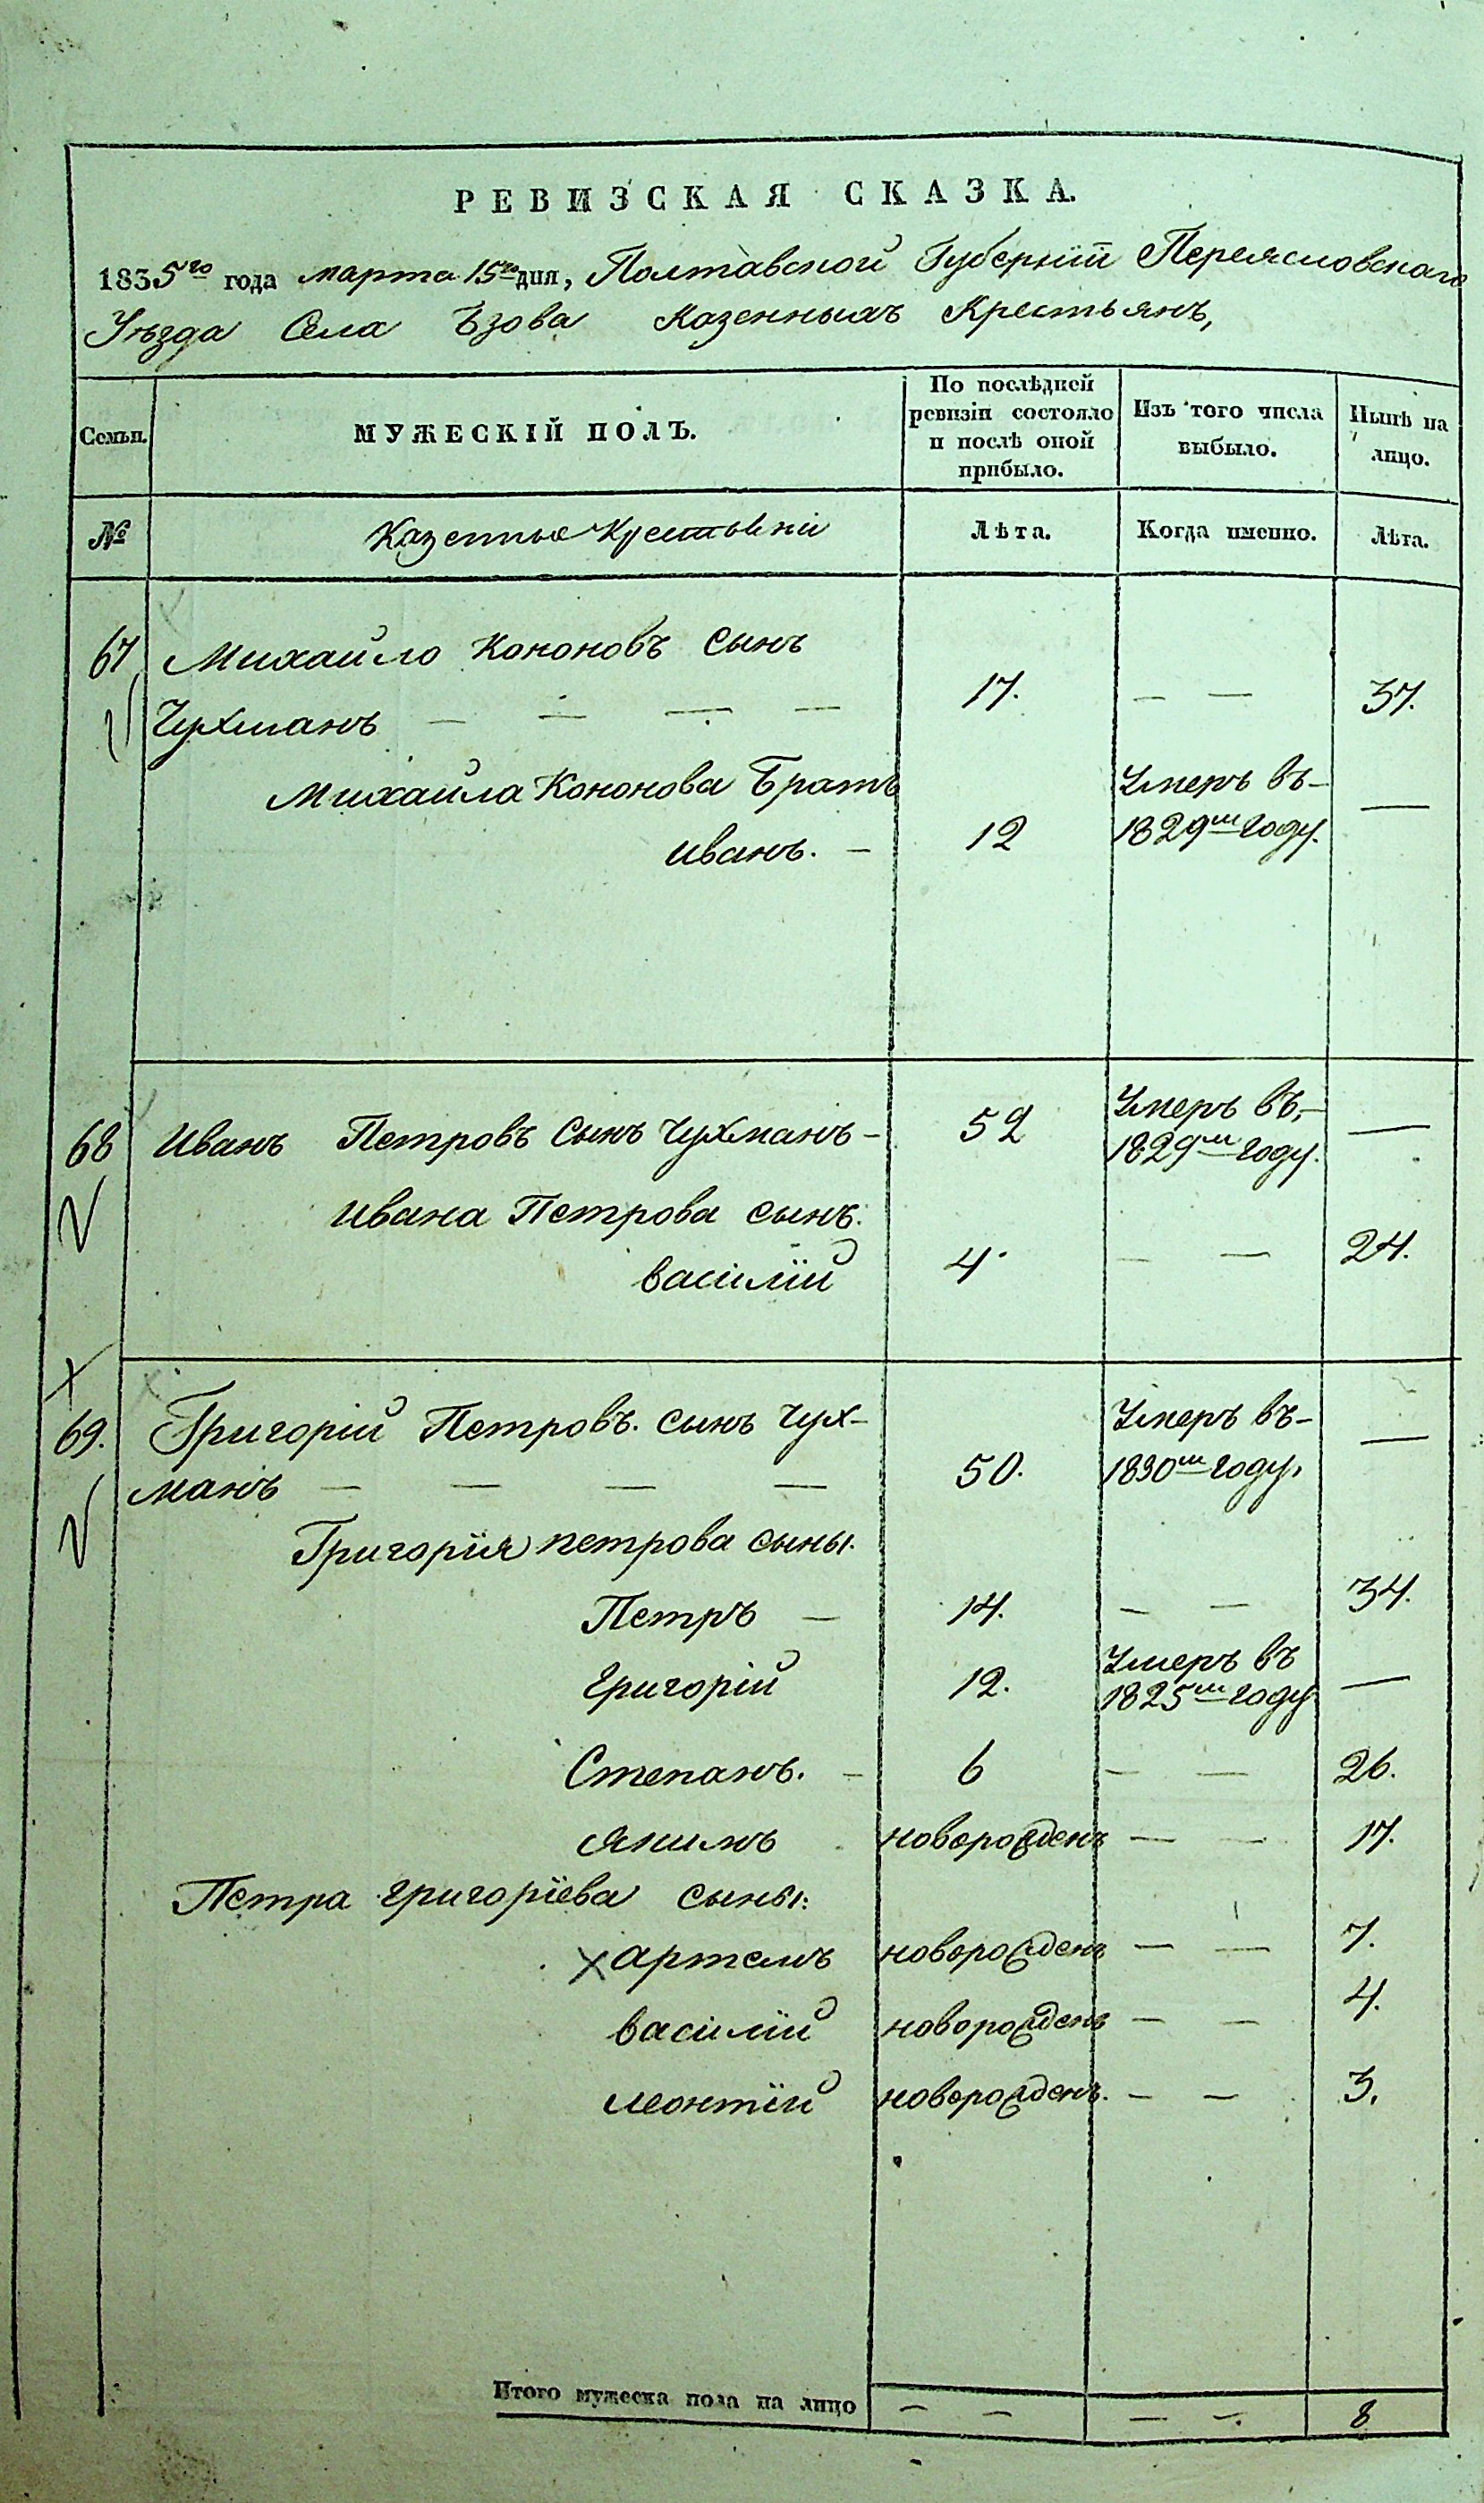 РЕВИЗСКАЯ СКАЗКА.
1835го года марта 15го дня, Полтавской Губернїи Переясловскаго
Уѣзда Села Ѣзова Казенныхъ Крестьянъ,
Семьи. МУЖЕСКІЙ ПОЛЪ. По послѣдней ревизіи состояло и послѣ оной прибыло. Изъ того числа выбыло. Нынѣ на лицо.
№ Казенные Крестьяни Лѣта. Когда именно. Лѣта.
67 Михайло Кононовъ сынъ
Чухманъ — — — — 17. — — 37.
Михайла Кононова Братъ Умеръ въ —
иванъ. — 12 1829м году.
68 Иванъ Петровъ Сынъ Чухманъ — 52 Умеръ въ, 1829м году. —
ивана Петрова сынъ.
васілїй 4. — — 24.
69. Григорій Петровъ. сынъ Чух- Умеръ въ- —
манъ — — — — 50. 1830м году.
Григорїя петрова сыны.
Петръ — 14. — — 34.
григорій 12. Умеръ въ 1825м году —
Степанъ. — 6 — — 26.
якимъ новорожденъ — — 17.
Петра григорїева сыны:
х артемъ новорожденъ — — 7.
васілїй новорожденъ — — 4.
леонтїй новорожденъ. — — 3.
Итого мужеска пола на лицо — — — —. 8